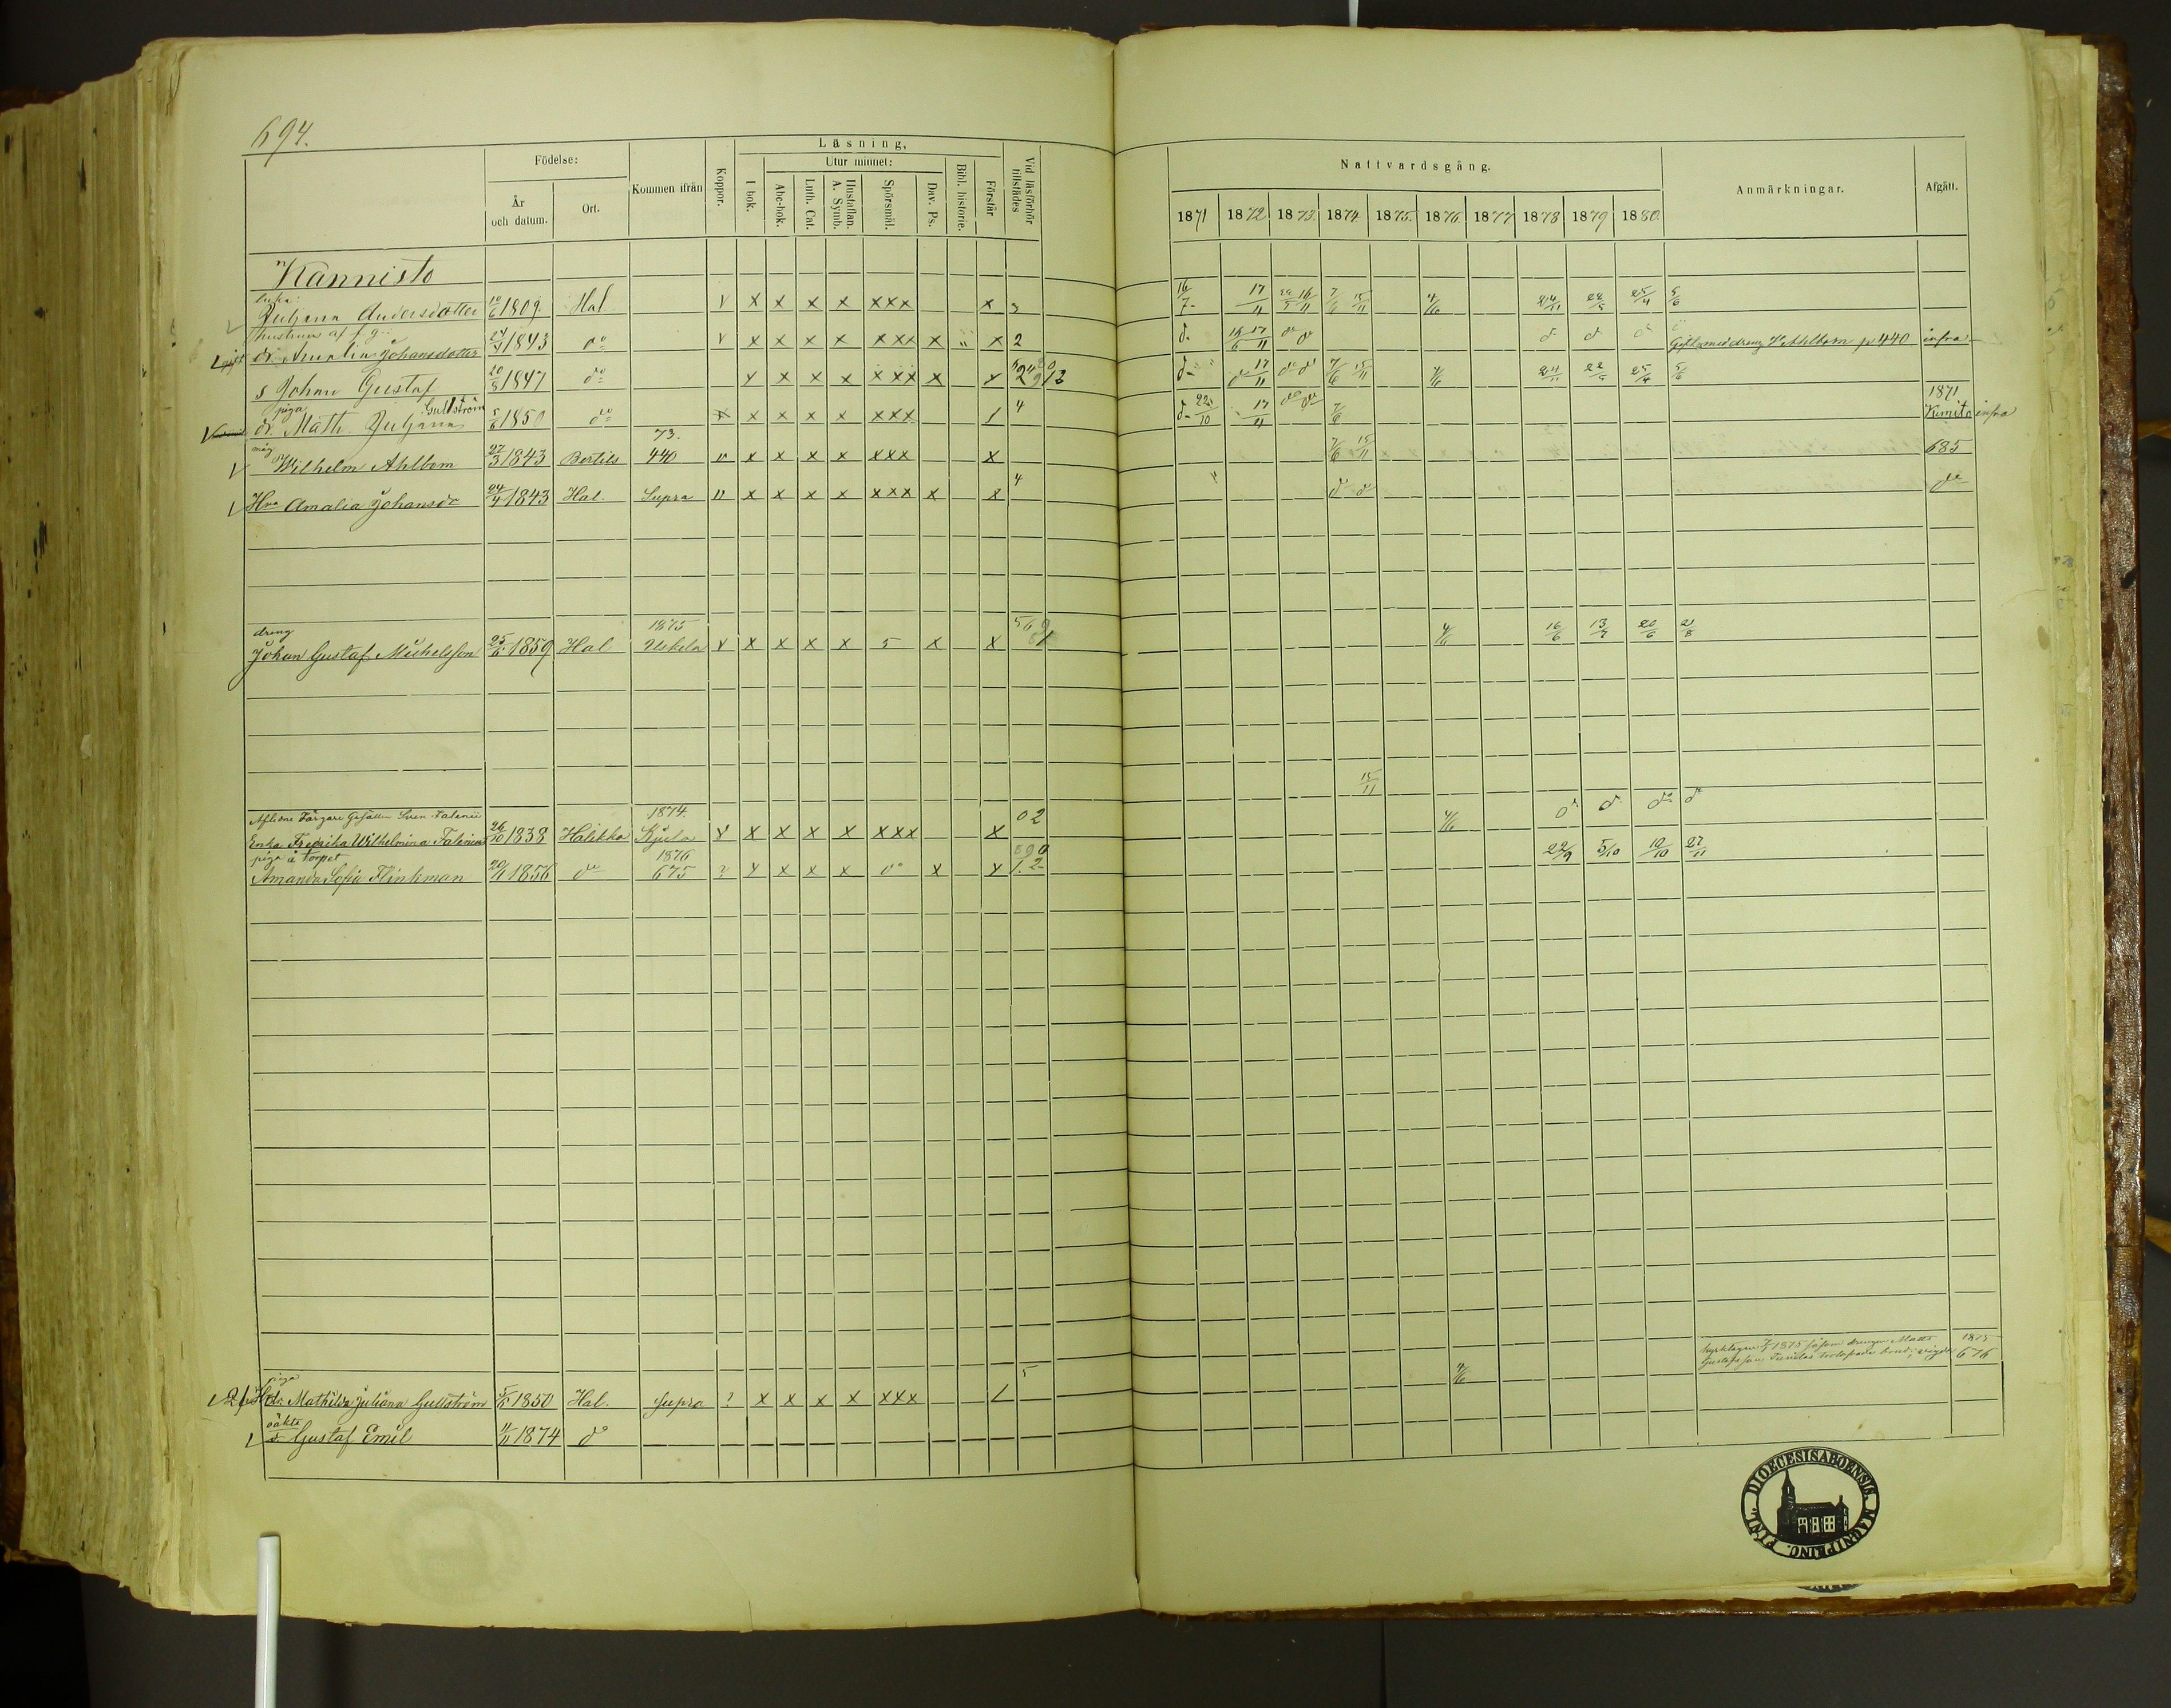 694.
Födelse:
År och datum.
Ort.
Kommen ifrån
Koppor.
Läsning,
I bok.
Utur minnet:
Abc-bok.
Luth. Cat.
Hustaflan. A. Symb.
Spörsmål.
Dav. Ps.
Bibl. historie.
Förstår
Vid läsförhör tillstädes
Nattvardsgång.
1871 1872 1873. 1874 1875. 1876. 1877 1878 1879 1880.
Anmärkningar.
Afgått.
Kännistö
Enka:
Juliana Andersdotter 10/6 1809. Hal. v x x x x xxx x 16/7 17/11 16/11 7/6 15/11 4/6 24/11 25/4 5/6
hustrun af f. g.
dr Amalia Johansdotter 24/4 1843 do v x x x x xxx x " x 2 d. 17/11 do do Gift med dreng W Ahlbom p 440 infra
s Johan Gustaf 20/8 1847 do v x x x x xxx x x d. 17/11 do do 7/6 15/11 4/6 24/11 25/4 5/6
piga Gullström
dr Math. Juliana 5/6 1850 do x x x x x xxx 4 d. 22/10 17/11 do do 7/6 1871 Kimito infra
måg 73.
Wilhelm Ahlbom 27/3 1843 Bertils 440 v x x x x xxx x 7/6 15/11 685
Hu Amalia Johansdr 24/4 1843 Hal. Supra v x x x x xxx x x 4 do do do
dreng 1875
Johan Gustaf Michelsson 25/6 1859 Hal Uskela v x x x x 5 x x 4/6 16/6 13/7 20/6 21/8
15/11
Aflidne Färgare Gesällen Sven Falenii 1874.
Enka Fredrika Wilhelmina Falenius 26/10 1838 Halikko Kjula v x x x x xxx x 02 4/6 do do do do
piga å Torpet 1876
Amanda Sofia Flinkman 20/11 1856 do 675 ? x x x x do x x 1.2 22/9 5/10 10/10 27/11
piga
dr Mathilda Juliana Gullström 5/6 1850 Hal. Supra ? x x x x xxx 5 4/6 1875 såsom drengen Matts Gustafsson 1875 676
oäkta
s. Gustaf Emil 11/11 1874 do
DIOECESIS ABOENSIS. MAGNI PRINC. FINL.